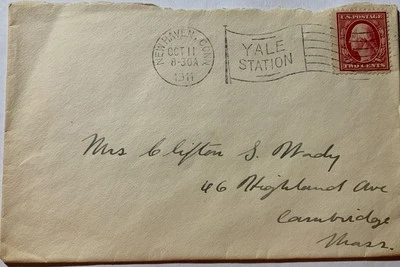 NEW HAVEN, CONN.
OCT 11
8-30A
1911
YALE
STATION
U.S. POSTAGE
TWO CENTS
Mrs Clifton S. Wady
46 Highland Ave
Cambridge
Mass.